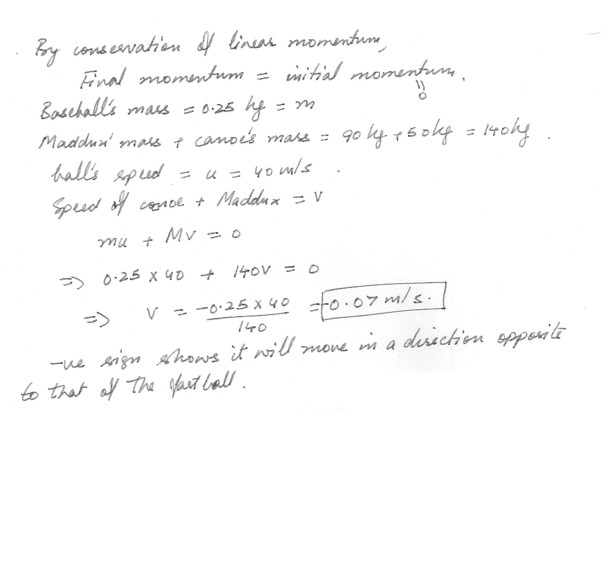 By conservation of linear momentum,
Final momentum = initial momentum.
= 0
Baseball's mass = 0.25 kg = m
Maddux' mass + canoe's mass = 90 kg + 50kg = 140kg.
ball's speed = u = 40 m/s.
Speed of canoe + Maddux = V
mu + MV = 0
=> 0.25 X 40 + 140V = 0
=> V = -0.25 X 40 / 140 = -0.07 m/s.
-ve sign shows it will move in a direction opposite
to that of the fastball.